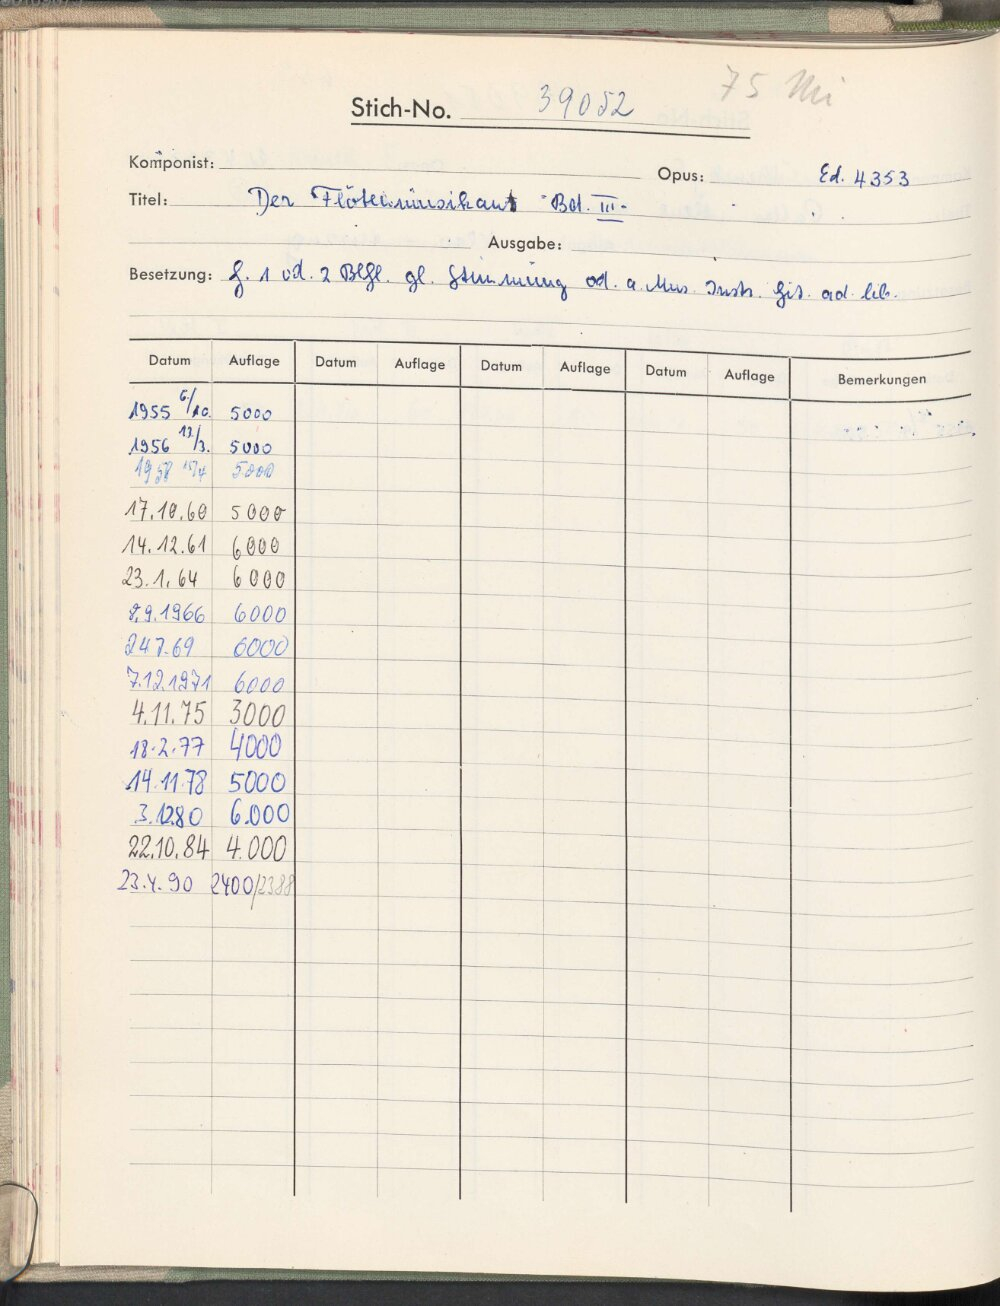 75 Mi
Stich-No. 39052
Komponist:
Opus: Ed. 4353
Titel: Der Flötenmusikant Bd. III.
Ausgabe:
Besetzung: f. 1 od. 2 Blfl. gl. Stimmung od. a. Mus. Instr. Git. ad. lib.
Datum Auflage Datum Auflage Datum Auflage Datum Auflage Bemerkungen
1955 6/10. 5000
1956 12/3. 5000
1958 15/4 5000
17.10.60 5000
14.12.61 6000
23.1.64 6000
8.9.1966 6000
24.7.69 6000
7.12.1971 6000
4.11.75 3000
18.2.77 4000
14.11.78 5000
3.12.80 6.000
22.10.84 4.000
23.4.90 2400/2388